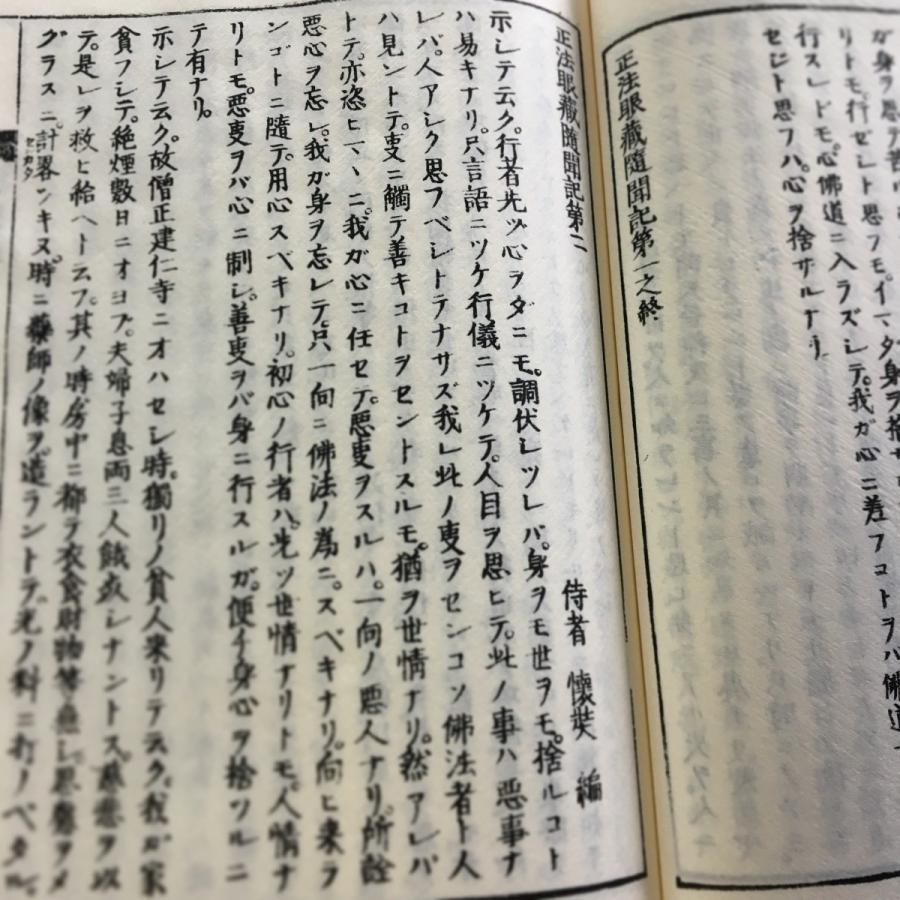 ガ身ヲ思テ
リトモ行ゼシト思フモ。イマダ身ヲ捨
行スレドモ。心佛道ニ入ラズシテ。我ガ心ニ差フコトヲバ佛道
セじト思フハ。心ヲ捨ザルナリ。
正法眼藏隨聞記第一之終
正法眼藏隨聞記第二
侍者 懷弉 編
示シテ云ク。行者先ツ心ヲダニモ。調伏シツレバ。身ヲモ世ヲモ。捨ルコト
ハ易キナリ。只言語ニツケ行儀ニツケテ。人目ヲ思ヒテ。此ノ事ハ惡事ナ
レバ。人アシク思フベシトテナサズ我レ此ノ叓ヲセンコソ佛法者ト人
ハ見ントテ。叓ニ觸テ善キコトヲセントスルモ。猶ヲ世情ナリ。然アレバ
トテ。亦恣ヒヽヽニ。我ガ心ニ任セテ。惡叓ヲスルハ。一向ノ惡人ナリ。所詮
惡心ヲ忘レ。我ガ身ヲ忘レテ。只一向ニ佛法ノ爲ニ。スベキナリ。向ヒ來ラ
ンゴトニ隨テ。用心スベキナリ。初心ノ行者ハ。先ツ世情ナリトモ。人情ナ
リトモ。惡叓ヲバ心ニ制シ。善叓ヲバ身ニ行スルガ。便チ身心ヲ捨ツルニ
テ有ナリ。
示シテ云ク。故僧正建仁寺ニオハセシ時。獨リノ貧人來リテ云ク。我ガ家
貧フシテ。絶煙數日ニオヨブ。夫婦子息両三人餓死シナントス。慈悲ヲ以
テ。是レヲ救ヒ給ヘト云フ。其ノ時房中ニ都ヲ衣食財物等無シ。思慮ヲメ
グラスニ。計畧センカタツキヌ。時ニ藥師ノ像ヲ造ラントテ。光ノ料ニ打ノベタル。